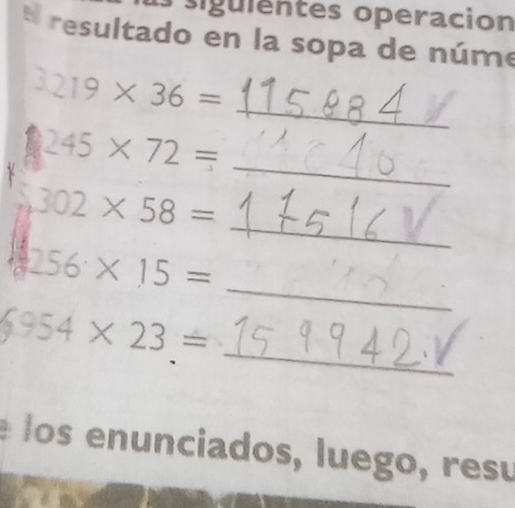 siguientes operacion
el resultado en la sopa de núme
3219 × 36 = 115884
245 × 72 =
302 × 58 = 17516
256 × 15 =
6954 × 23 = 159942.
los enunciados, luego, resu